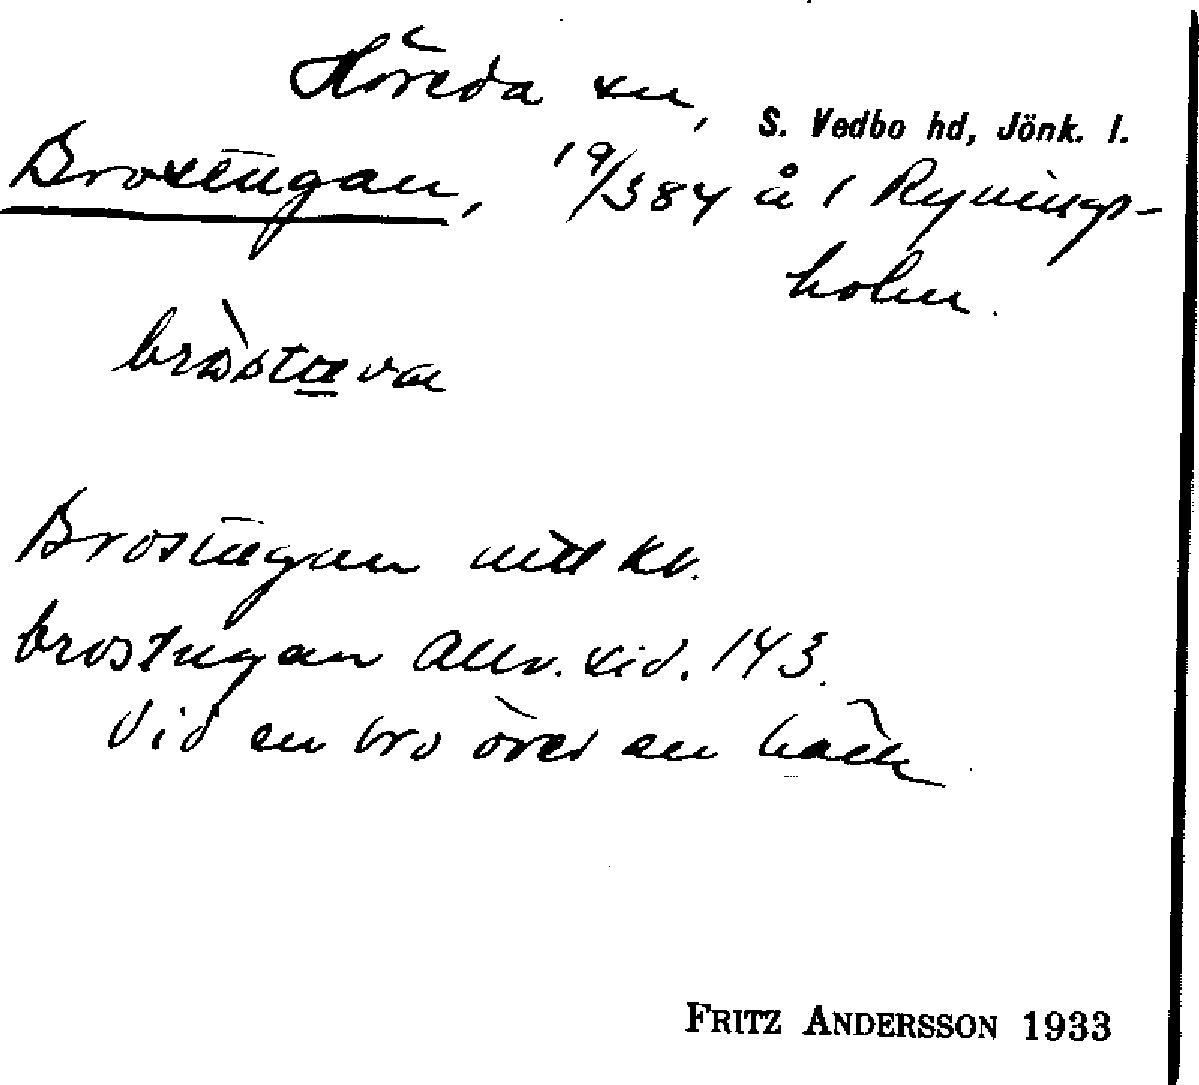 Höreda sn, S. Vedbo hd, Jönk. l.
Brostugan, 19/384 å 1 Rynings-
holm.
bròstɷva
Brostugan uttl kv.
brostugan Allm. sid. 143.
Vid en bro över en bäck
FRITZ ANDERSSON 1933